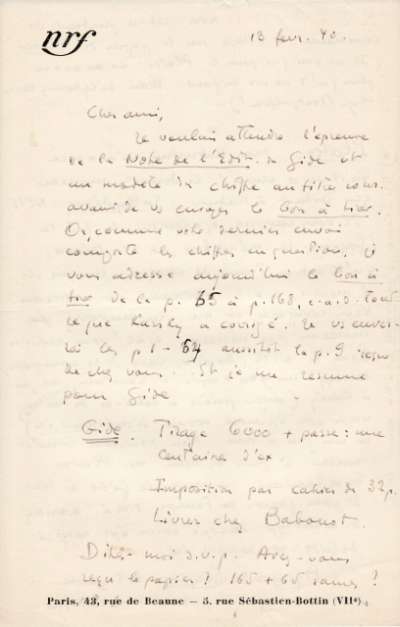 nrf
13 fevr. 40.
Cher ami,
Je voulais attendre l'épreuve
de la Note de l'Edit. de Gide et
un modèle de chiffre au titre cour.
avant de vs envoyer le bon à tirer.
Or, comme votre dernier envoi
comporte les chiffres en question, je
vous adresse aujourd'hui le bon à
tirer de la p. 65 à p. 168, c.-à-d. tout
ce que a corrigé. Je vs enver-
rai les p. 1 - 64 aussitôt la p. 9 reçue
de chez vous. Et je me résume
pour Gide
Gide. Tirage 6000 + passe : une
centaine d'ex.
Imposition par cahier de 32 p.
Livrer chez Babouot.
Dites-moi s.v.p. Avez-vous
reçu le papier ? 165 + 65 rames ?
Paris, 43, rue de Beaune — 5, rue Sébastien-Bottin (VIIe)